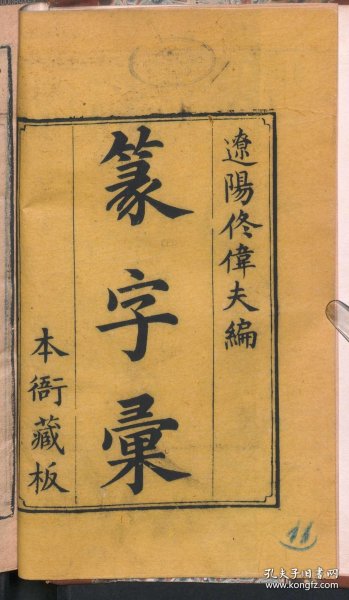 遼陽佟偉夫編
篆字彙
本衙藏板
11
孔夫子旧书网
www.kongfz.com